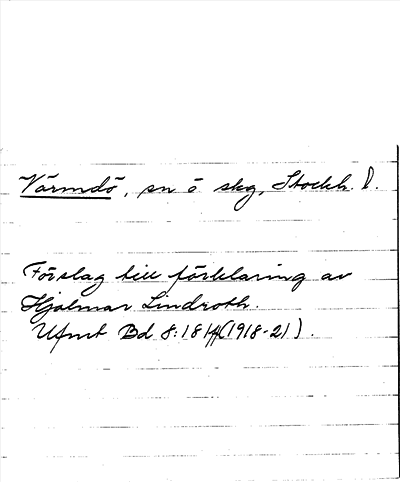 Värmdö, sn o skg, Stockh. l.
Förslag till förklaring av
Hjalmar Lindroth.
Ufmt Bd 8:18 ff (1918-21).